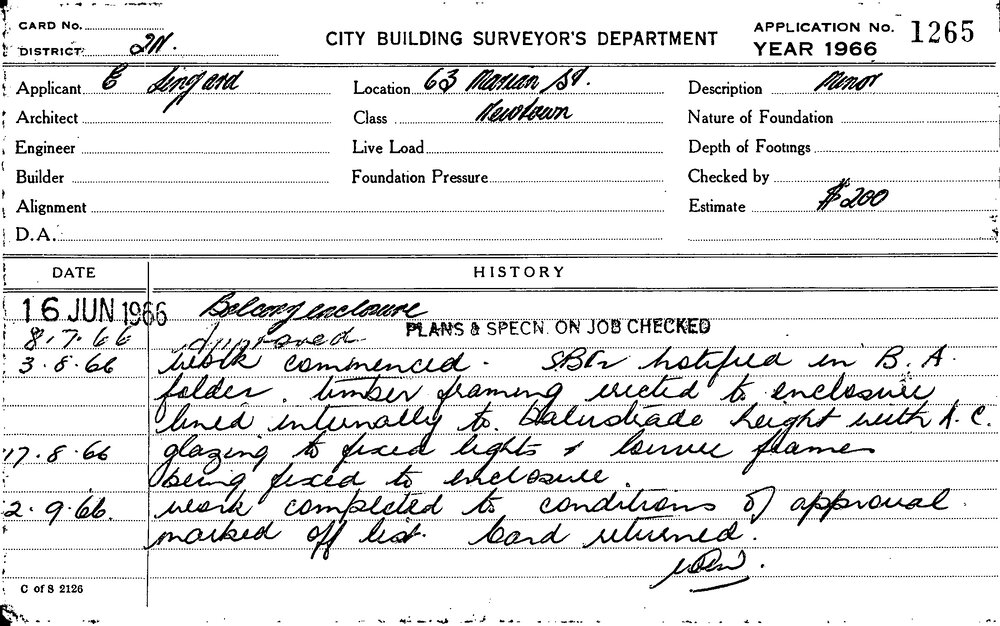 CARD No.
DISTRICT 2N.
CITY BUILDING SURVEYOR'S DEPARTMENT
APPLICATION No. 1265
YEAR 1966
Applicant C Lingard
Location 63 Marian St.
Description Minor
Architect
Class Newtown
Nature of Foundation
Engineer
Live Load
Depth of Footings
Builder
Foundation Pressure
Checked by
Alignment
Estimate $200
D.A.
DATE
HISTORY
16 JUN 1966 Balcony enclosure
8.7.66 Approved PLANS & SPECN. ON JOB CHECKED
3.8.66 work commenced. notified in B.A.
folder. timber framing erected to enclosure
lined internally to balustrade height with A.C.
17.8.66 glazing to fixed lights & louvre frames
being fixed to enclosure.
2.9.66. work completed to conditions of approval
marked off list. Card returned.
C of S 2126